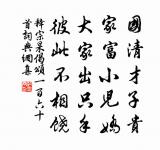 國清才子貴
家富小兒嬌
大家出只手
彼此不相饒
釋宗杲偈頌一百六十
首詞典網書